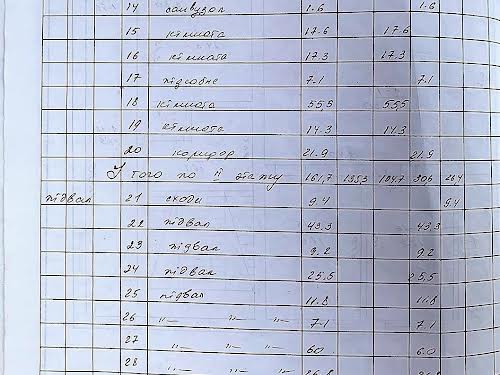 14 санвузол 1.6 1.6
15 кімната 17.6 17.6
16 кімната 17.3 17.3
17 підсобне 7.1 7.1
18 кімната 55.5 55.5
19 кімната 14.3 14.3
20 коридор 21.9 21.9
Ітого по II этажу 161,7
підвал 21 сходи 9.4 9.4
22 підвал 43.3 43.3
23 підвал 9.2 9.2
24 підвал 25.5 25,5
25 підвал 11.8 11.8
26 "— "— "— 7.1 7.1
27 "— "— "— 6.0 6.0
28 "— "— "— 26.8 26.8